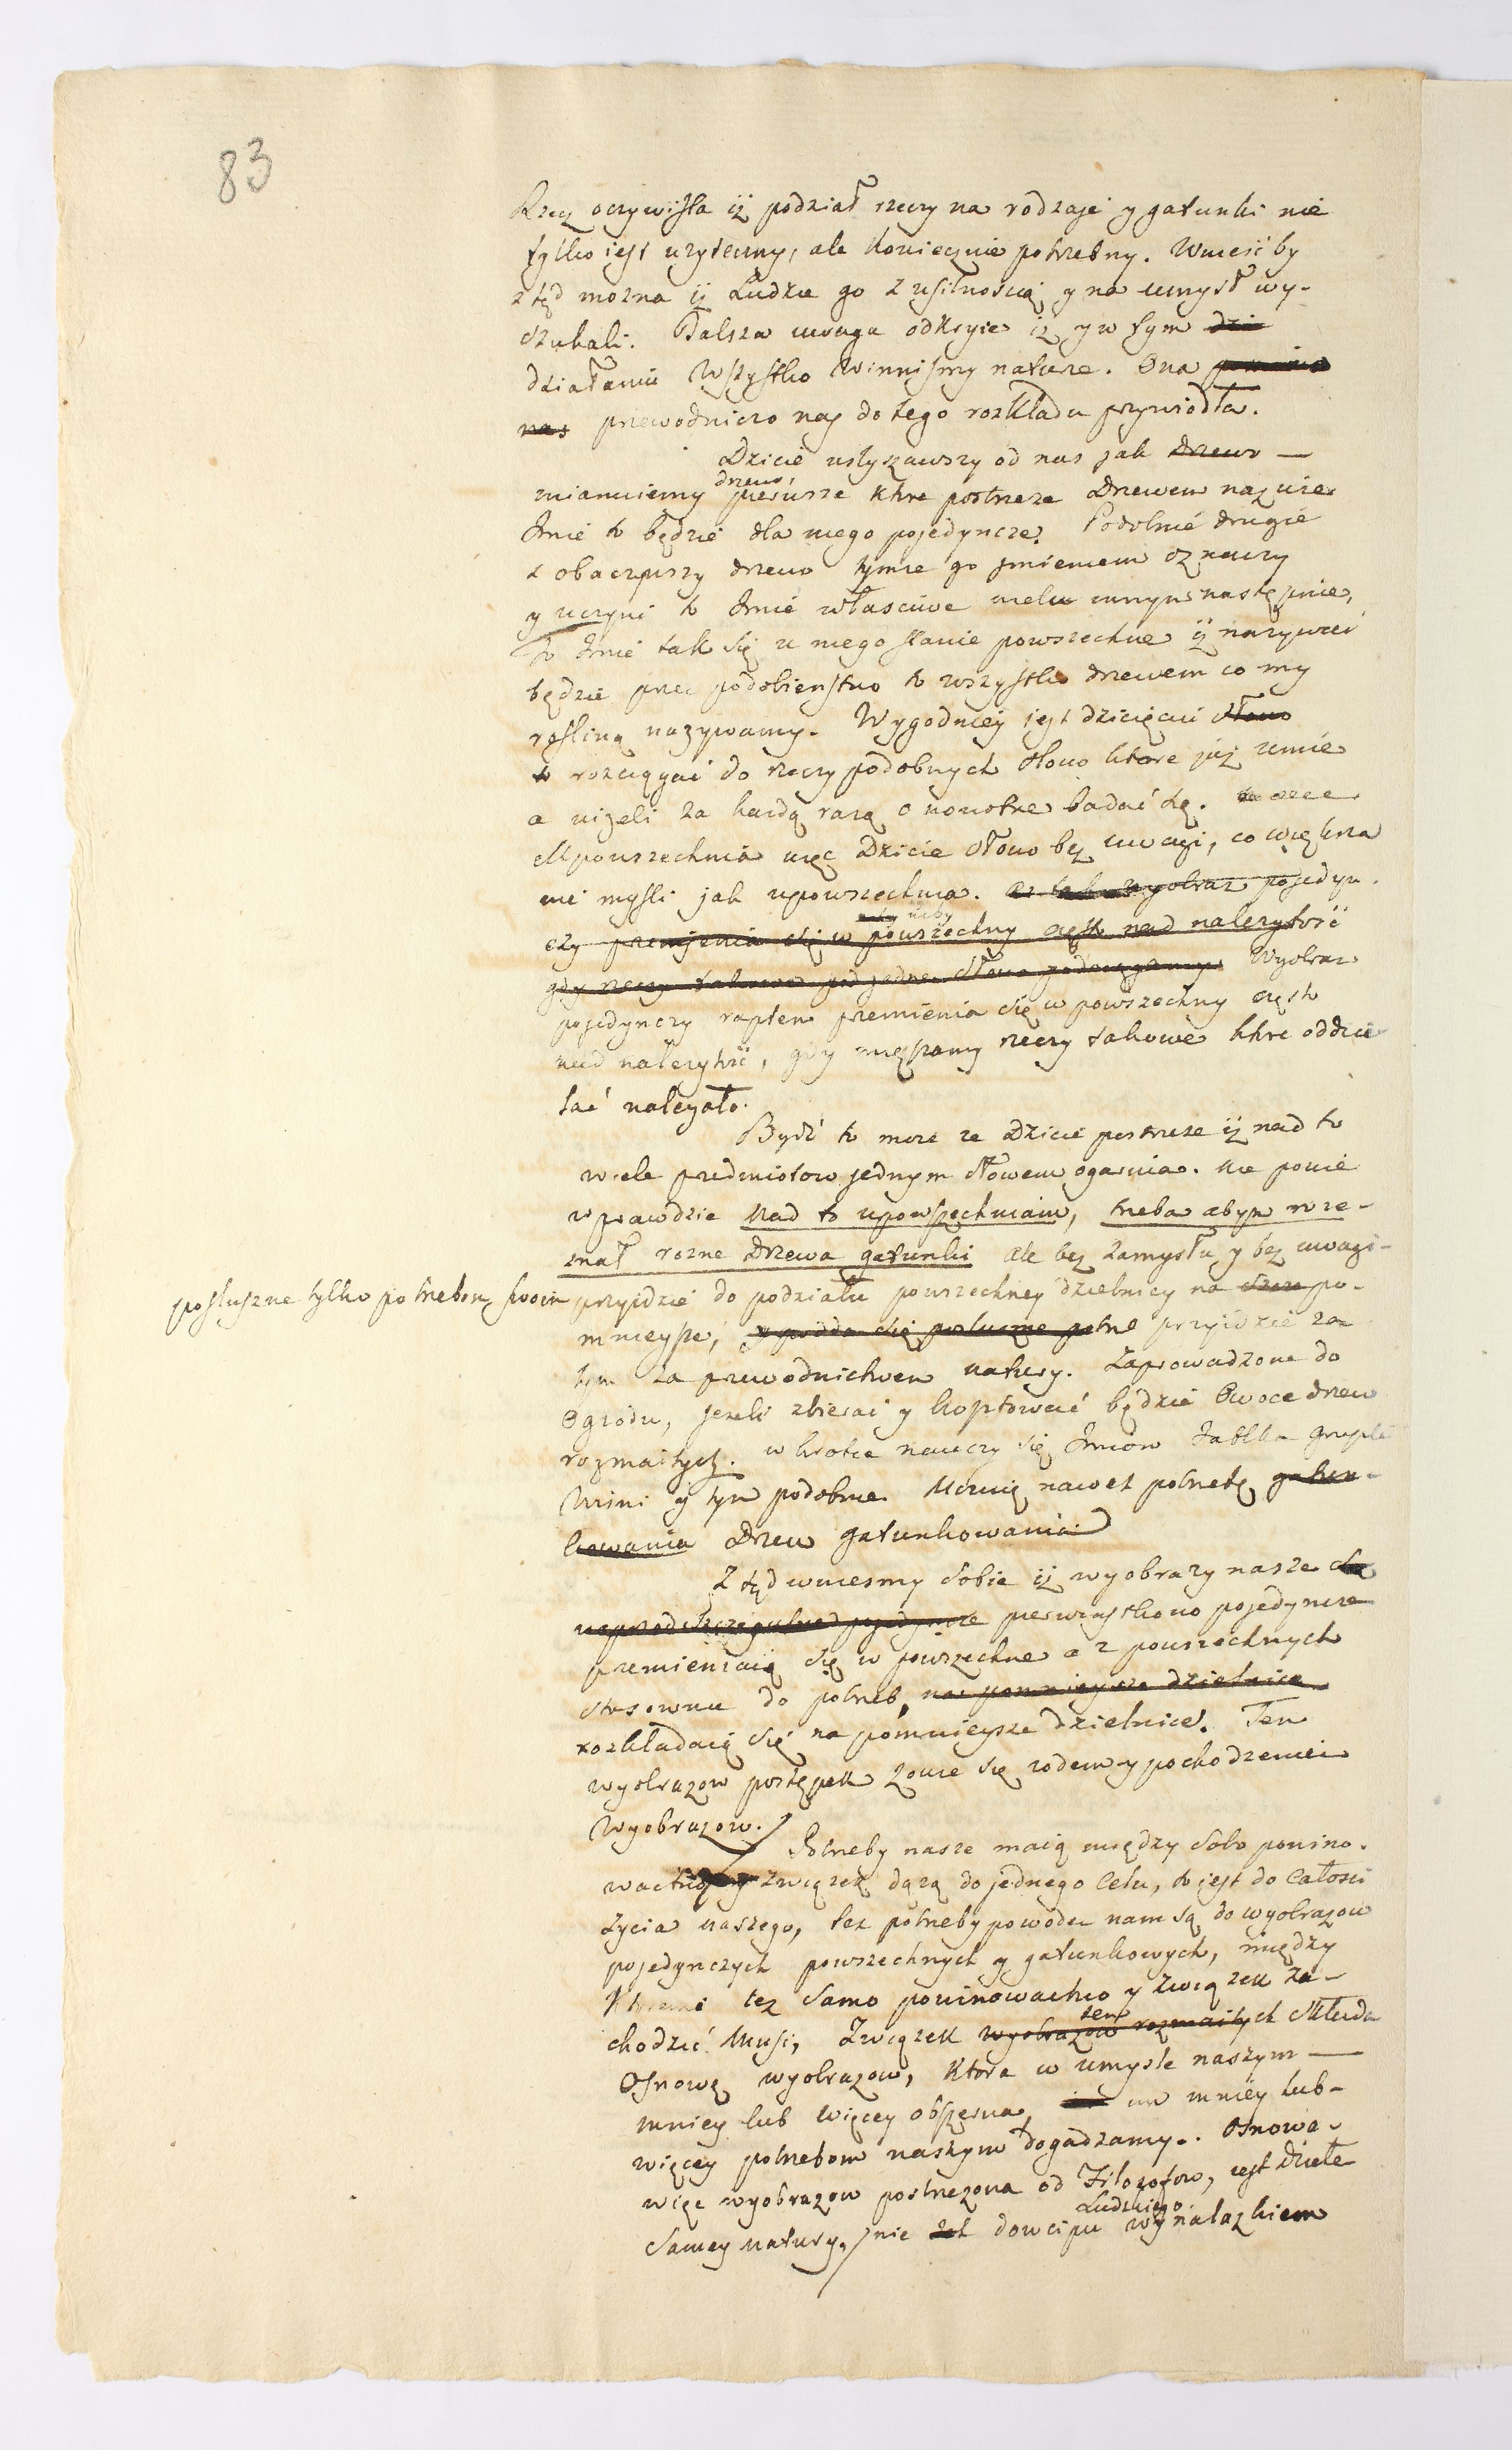 83
Rzecz oczywista iż podział rzeczy na rodzaje y gatunki nie
tylko jest uzyteczny, ale koniecznie potrzebny. Wnieść by
z tąd mozna iż Ludzie go z usilnością y na umysł wy-
szukali. Dalsza uwaga odkryie iż y w tym dzi
działaniu wszystko winnismy naturze. Ona
nas przewodniczo nas do tego rozkładu przywiodła.
Dzicie usłyszawszy od nas jak drzewo —
mianuiemy drzewo, pierwsze ktre postrzeze Drzewem nazwie
Jmie to będzie dla niego pojedyncze. Podobnie drugie
zobaczywszy drzewo tymze go jmieniem oznaczy
y uczyni to Jmie własciwe wielu innym następnie,
to Jmie tak się u niego stanie powszechne iż nazywać
będzie przez podobienstwo to wszystko drzewem co my
rosliną nazywamy. Wygodniey jest dziecięciu słowo
to rozciągać do rzeczy podobnych słowo ktore już umie
a nizeli za kazdą razą o nowotne badać się.
Upowszechnia więc Dzicie słowo bez uwagi, co większa
nie mysli jak upowszechnia. wyobraz pojedyn.
czy przemienia się w powszechny często nad nalezytość
gdy rzeczy takowe pod jedno słowo podciągamy Wyobraz
pojedynczy raptem przemienia się w powszechny często
nad nalezytość, gdy mięszamy rzeczy takowe ktre oddzie
lać nalezało.
Bydź to moze ze Dzicie postrzeze iż nad to
wiele przedmiotow jednym słowem ogarnia. nie powie
w prawdzie nad to upowszechniam, trzeba abym roze-
znał rozne Drzewa gatunki ale bez zamysłu y bez uwagi-
posłuszne tylko potrzebom swoim przyidzie do podziału powszechney dzielnicy na po-
mnieysze, y podda się posłuszne potrze przyidzie za-
tym za przewodnictwem natury. Zaprowadzone do
Ogrodu, jezeli zbierać y kosztować będzie Owoce drzew
rozmaitych. w krotce nauczy się Jmion Jabłka gruszki
Wisni y tym podobne. Uczuie nawet potrzebę gatun-
kowania Drzew gatunkowania
Z tąd wniesmy sobie iż wyobrazy nasze
naprzod szczegulne pojedyncze pierwiastkowo pojedyncze
przemieniaią się w powszechne a z powszechnych
stosownie do potrzeb, na pomnieysze dzielnice
rozkładaią się na pomnieysze dzielnice. Ten
wyobrazow postępek zowie się rodem y pochodzeniem
Wyobrazow.
Potrzeby nasze maią między sobo powino-
wactwo y związek dążą do jednego Celu, to jest do Całosci
zycia naszego, tez potrzeby powodem nam są do wyobrazow
pojedynczych powszechnych y gatunkowych, między
Ktremi tez samo powinowactwo y związek za-
chodzić musi, Związek ten wyobrazow rozmaitych składa
Osnowę wyobrazow, Ktora w umysle naszym —
mniey lub więcey obszerna, im mniey lub-
więcey potrzebom naszym dogadzamy. Osnowa-
więc wyobrazow postrzezona od Filozofow, jest dzieło
samey natury, nie dowcipu Ludzkiego wynalazkiem